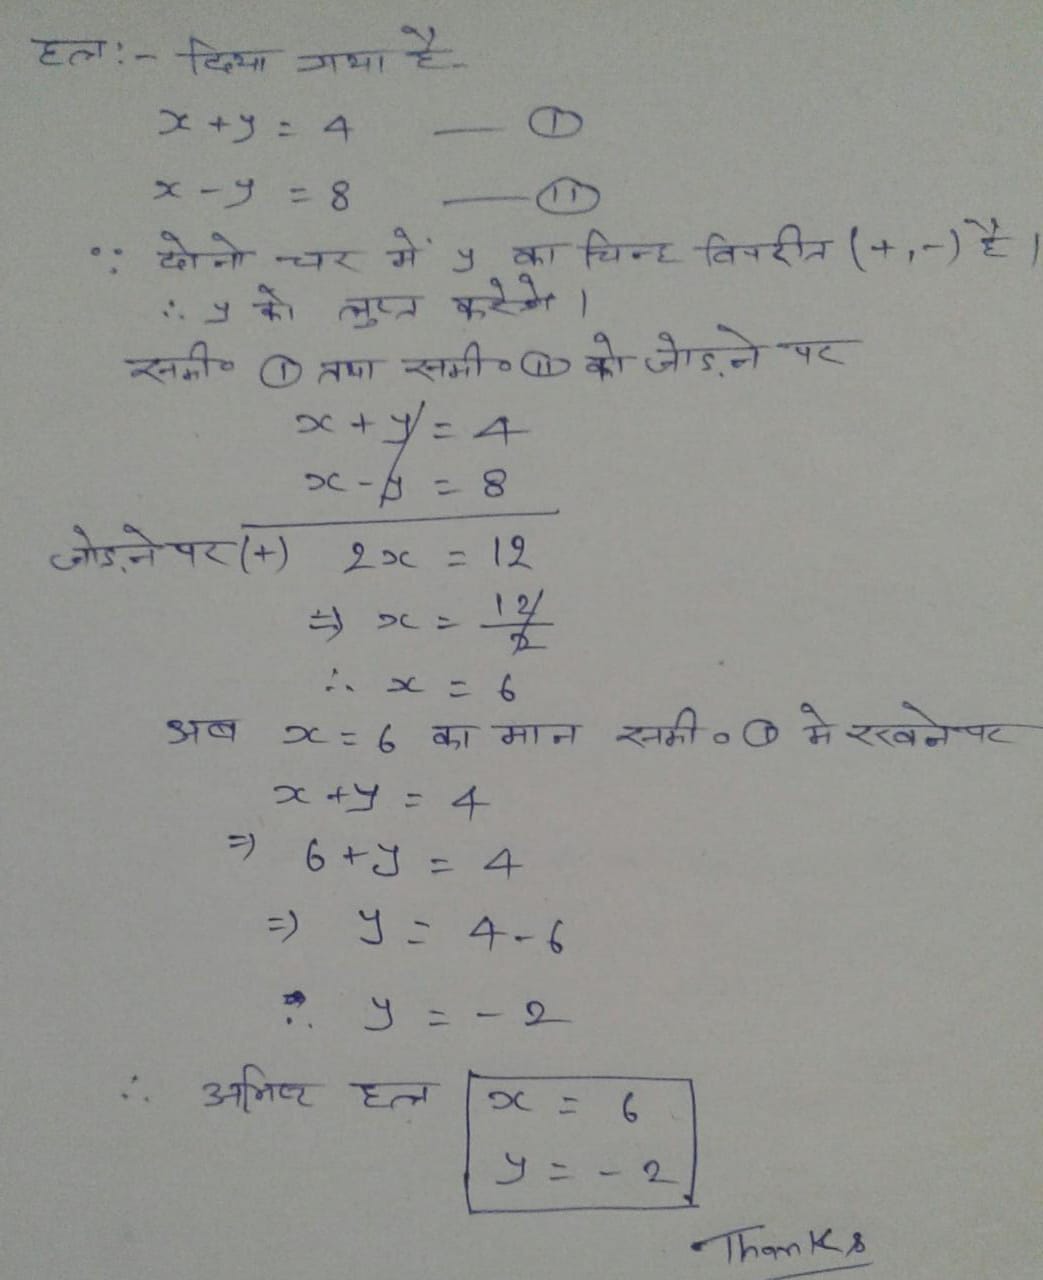 हल :- दिया गया है -
x + y = 4 — ①
x - y = 8 — ⑪
∵ दोनो चर में y का चिन्ह विपरीत (+,-) है।
∴ y को लुप्त करेगे।
समी० ① तथा समी० ⑪ को जोड़ने पर
x + y = 4
x - y = 8
जोड़ने पर (+) 2x = 12
⇒ x = 12/2
∴ x = 6
अब x = 6 का मान समी० ① मे रखने पर
x + y = 4
⇒ 6 + y = 4
⇒ y = 4 - 6
∴ y = - 2
∴ अभिष्ट हल x = 6
y = - 2
Thanks